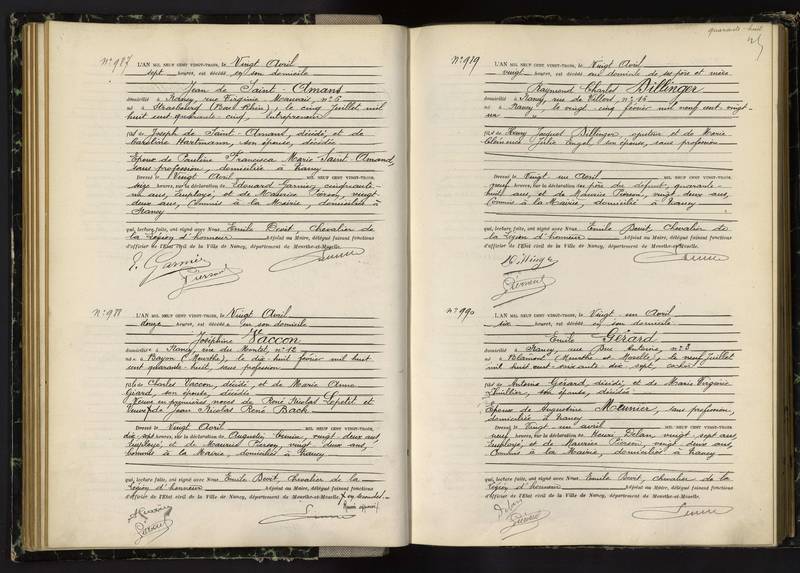 quarante-huit
N° 987
L'AN MIL NEUF CENT VINGT-TROIS, le Vingt Avril
sept heures, est décédé en son domicile
Jean de Saint-Amans
domicilié à Nancy, rue Virginie Mauvais, n° 5
né à Strasbourg (Bas Rhin), le cinq Juillet mil
huit cent quarante-cinq, Entrepreneur
fils de Joseph de Saint-Amans, décédé, et de
Caroline Hartmann, son épouse, décédée
Epoux de Pauline Francisca Marie Saint-Amand,
sans profession, domiciliée à Nancy
Dressé le Vingt Avril MIL NEUF CENT VINGT-TROIS,
seize heures, sur la déclaration de Edouard Garnier, cinquante-
un ans, Employé, et de Maurice Pierson, vingt
deux ans, Commis à la Mairie, domiciliés à
Nancy
qui, lecture faite, ont signé avec Nous Emile Devit, Chevalier de
la Légion d'honneur Adjoint au Maire, délégué faisant fonctions
d'officier de l'État civil de la Ville de Nancy, département de Meurthe-et-Moselle.
E. Garnier
Pierson
N° 988
L'AN MIL NEUF CENT VINGT-TROIS, le Vingt Avril
douze heures, est décédée en son domicile
Joséphine Vaccon
domiciliée à Nancy, rue du Montet, n° 12
née à Bayon (Meurthe), le dix-huit février mil huit
cent quarante-huit, sans profession
fille de Charles Vaccon, décédé, et de Marie Anne
Giard, son épouse, décédée
Veuve en premières noces de René Nicolas Lepolet et
Veuve de Jean Nicolas René Bach
Dressé le Vingt Avril MIL NEUF CENT VINGT-TROIS,
dix sept heures, sur la déclaration de Augustin, vingt deux ans,
Employé, et de Maurice Pierson, vingt deux ans,
Commis à la Mairie, domiciliés à Nancy
qui, lecture faite, ont signé avec Nous Emile Devit, Chevalier de la
Légion d'honneur Adjoint au Maire, délégué faisant fonctions
d'officier de l'État civil de la Ville de Nancy, département de Meurthe-et-Moselle.
Pierson
N° 989
L'AN MIL NEUF CENT VINGT-TROIS, le Vingt Avril
vingt heures, est décédé au domicile de ses père et mère
Raymond Charles Billinger
domicilié à Nancy, rue de Villers, n° 16
né à Nancy, le vingt-cinq février mil neuf cent vingt-
un
fils de Henry Jacques Billinger, opticien et de Marie
Clémence Julie Engel son épouse, sans profession
Dressé le Vingt-un Avril MIL NEUF CENT VINGT-TROIS,
neuf heures, sur la déclaration du père du défunt, quarante-
huit ans, et de Maurice Pierson, vingt deux ans,
Commis à la Mairie, domiciliés à Nancy
qui, lecture faite, ont signé avec Nous Emile Devit, Chevalier de
la Légion d'honneur Adjoint au Maire, délégué faisant fonctions
d'officier de l'État civil de la Ville de Nancy, département de Meurthe-et-Moselle.
Billinger
Pierson
N° 990
L'AN MIL NEUF CENT VINGT-TROIS, le Vingt-un Avril
six heures, est décédé en son domicile
Emile Gérard
domicilié à Nancy, rue n° 3
né à Blâmont (Meurthe et Moselle), le neuf Juillet
mil huit cent soixante-dix-sept, cocher
fils de Antoine Gérard, décédé, et de Marie Virginie
Lhuillier, son épouse, décédée
Epoux de Augustine Meunier, sans profession,
domiciliée à Nancy
Dressé le Vingt-un avril MIL NEUF CENT VINGT-TROIS,
neuf heures, sur la déclaration de Henri Delan, vingt-sept ans,
Employé, et de Maurice Pierson, vingt deux ans,
Commis à la Mairie, domiciliés à Nancy
qui, lecture faite, ont signé avec Nous Emile Devit, chevalier de la
Légion d'honneur Adjoint au Maire, délégué faisant fonctions
d'officier de l'État civil de la Ville de Nancy, département de Meurthe-et-Moselle.
Delan
Pierson